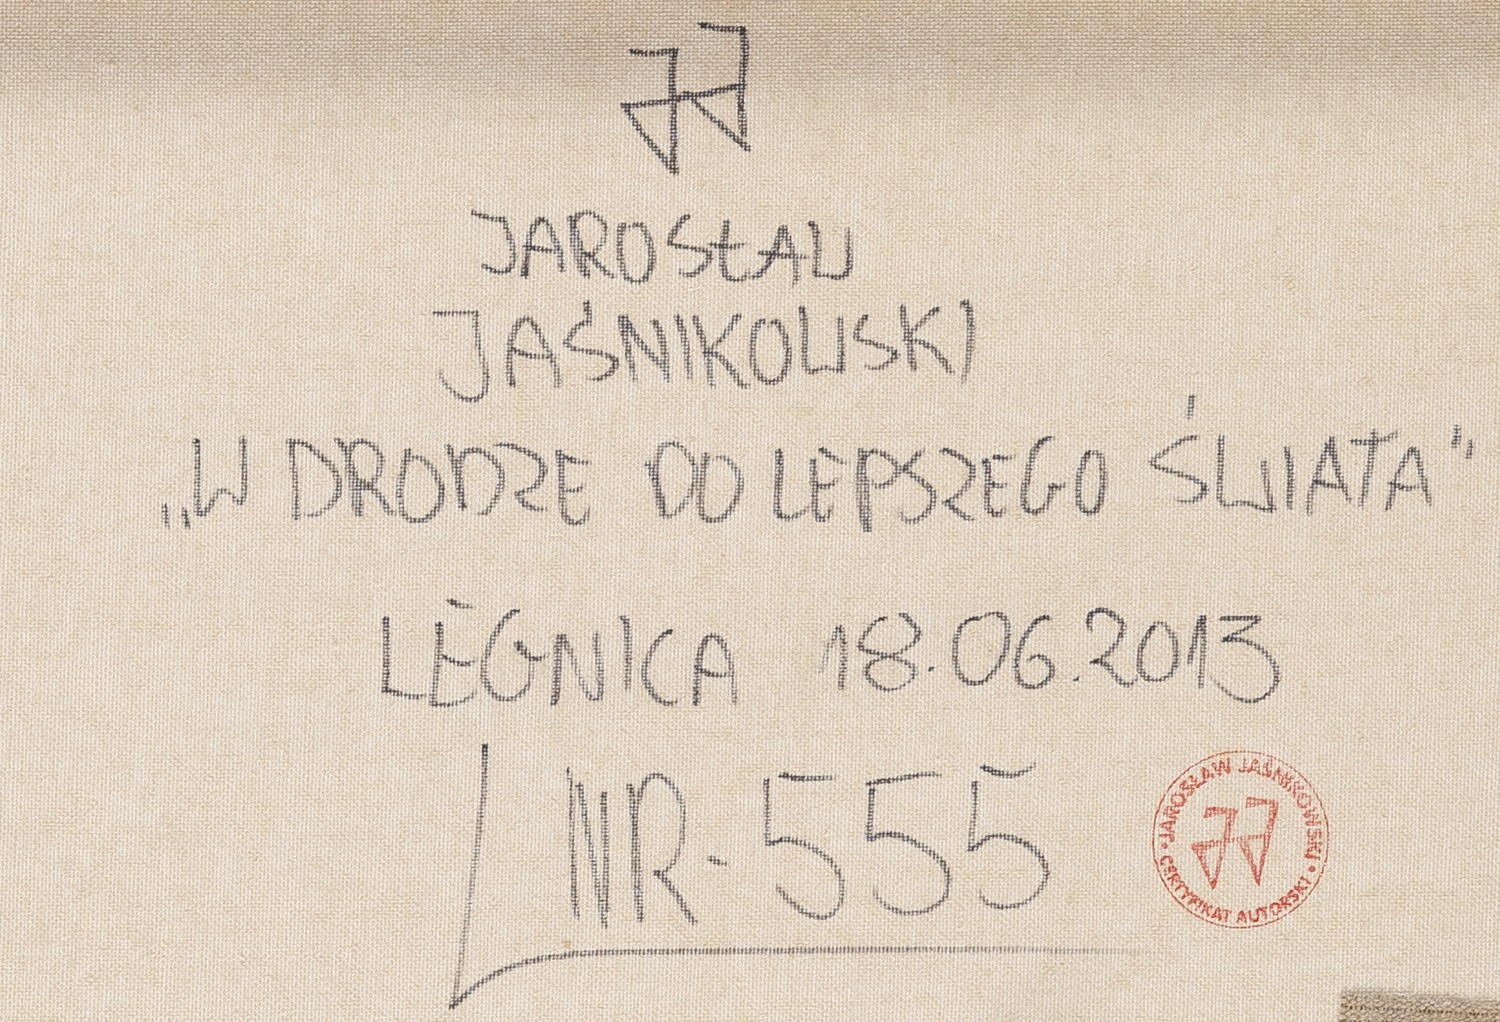 JJ
JAROSŁAW
JAŚNIKOWSKI
„W DRODZE DO LEPSZEGO ŚWIATA”
LEGNICA 18.06.2013
NR-555
• JAROSŁAW JAŚNIKOWSKI •
JJ
CERTYFIKAT AUTORSKI